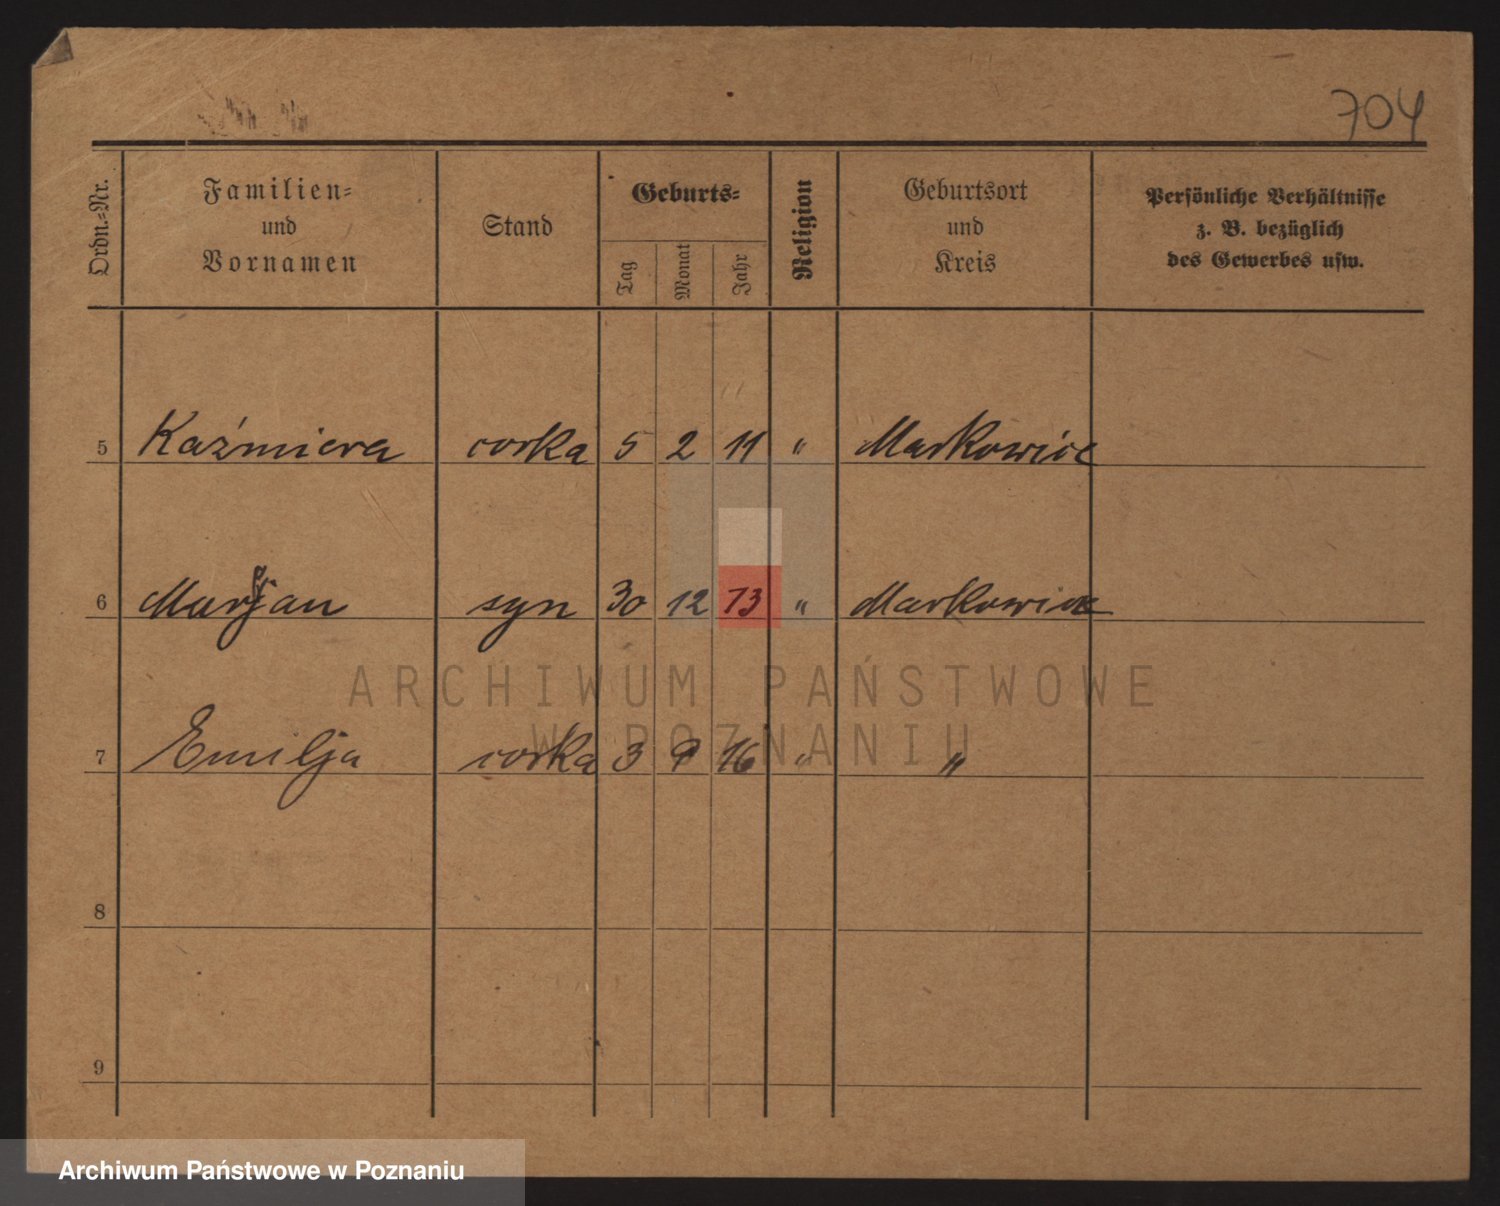 704
Ordn.-Nr. Familien- und Vornamen Stand Geburts- Tag Monat Jahr Religion Geburtsort und Kreis Persönliche Verhältnisse z. B. bezüglich des Gewerbes usw.
5 Kaźmiera corka 5 2 11 " Markowice
6 Marjan syn 30 12 13 " Markowice
ARCHIWUM PAŃSTWOWE
W POZNANIU
7 Emilja corka 3 9 16 " "
8
9
Archiwum Państwowe w Poznaniu